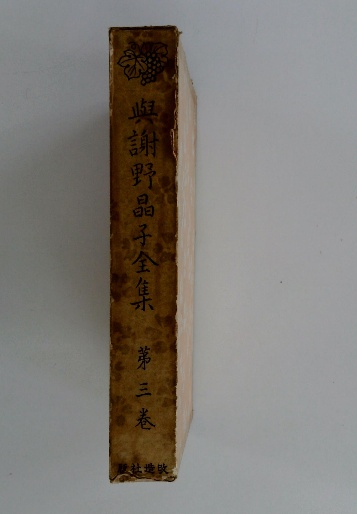 與謝野晶子全集 第三卷
改造社版